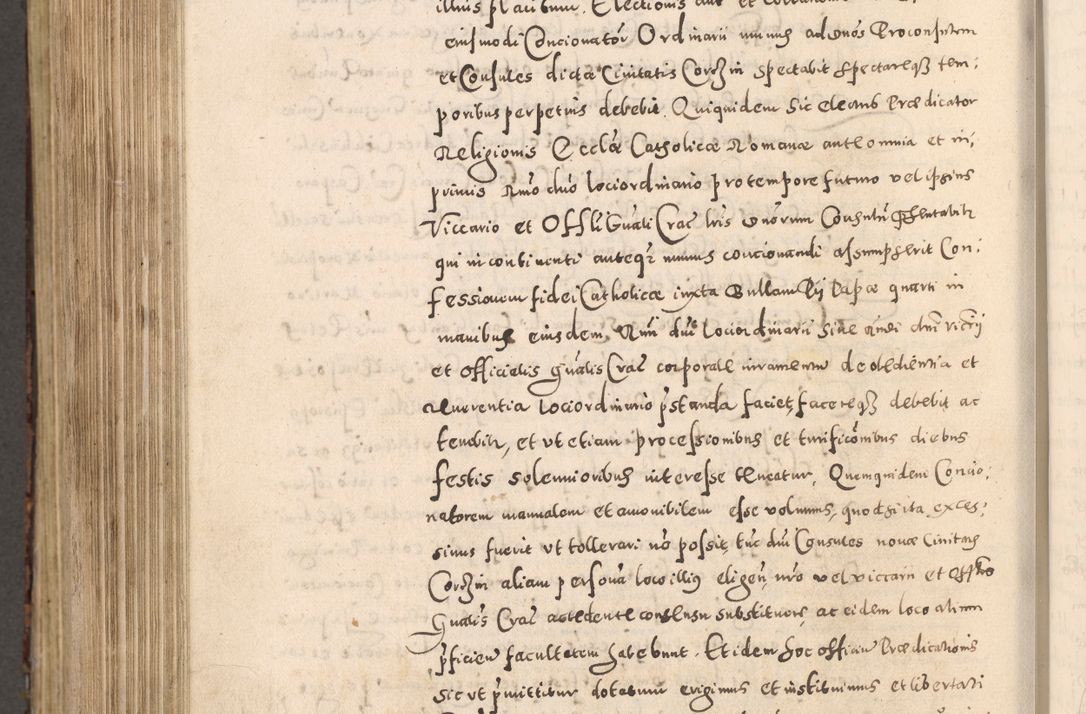 illius placitum. Electionis aut et
eiusmodi Concionatōr Ordinarii munus ad vnōs Proconsulem
et Consules dictæ Ciuitatis Corczin spectabit spectareqȝ tem:
poribus perpetuis debebit. Quiquidem sic electus Prædicator
Religionis Ecclæ Catholicæ Romanæ ante omnia et in:
primis Rmō dnō lociordinario pro tempore futuro vel ipsius
Viccario et Offli Gnāli Cracˢ lris vnōrum Consulū pñtabitr
qui in continenti anteqȝ munus concionandi assumpserit Con:
fessionem fidei Catholicæ iuxta Bullam Pij Papæ quarti in
manibus eiusdem Rmi dni Lociordinarii siue eiusdi dni viccrij
et officialis gnālis Cracˢ corporale iuramentū de obedientia et
reuerentia lociordinario p̃standa faciet, facereqȝ debebit ac
tenebitr, et vt etiam processionibus et turificōnibus diebus
festis solennioribus interesse teneatur. Quemquidem Concio:
natorem manualem et amonibilem esse volumus, quodsi ita exces:
siuus fuerit vt tollerari nō possit, tūc dni Consules nouæ Ciuitatis
Corczin aliam personā loco illius eligen, nrō vel viccarii et Offlis
Gnalis Cracˢ accedente consensu substituere, ac eidem loco alium
p̃ficien facultatem habebunt. Et idem hoc officiū Prædicationis
sic vt p̃mittitur dotatum erigimus et instituimus et libertati